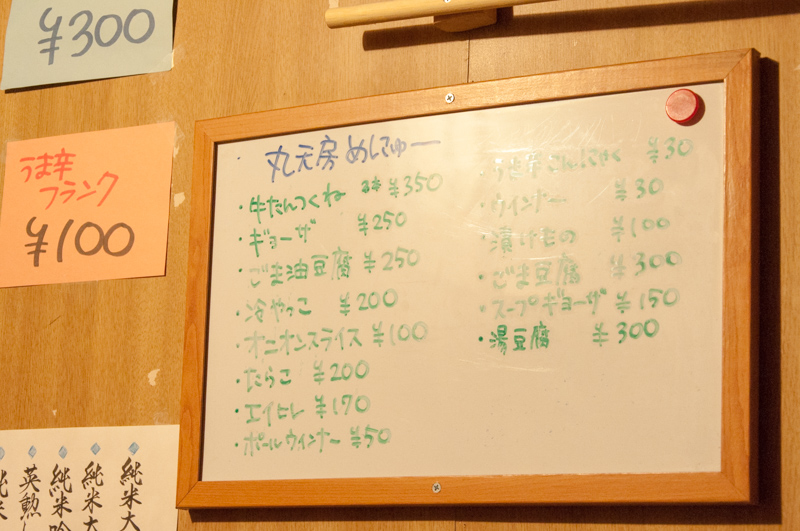 ¥300
うま辛
フランク
¥100
丸天房 めにゅー
・牛たんつくね 2本 ¥350
・ギョーザ ¥250
・ごま油豆腐 ¥250
・冷やっこ ¥200
・オニオンスライス ¥100
・たらこ ¥200
・エイヒレ ¥170
・ポールウインナー ¥50
・うま辛こんにゃく ¥30
・ウインナー ¥30
・漬けもの ¥100
・ごま豆腐 ¥300
・スープギョーザ ¥150
・湯豆腐 ¥300
純米大
純米大
純米吟
英勲
純米